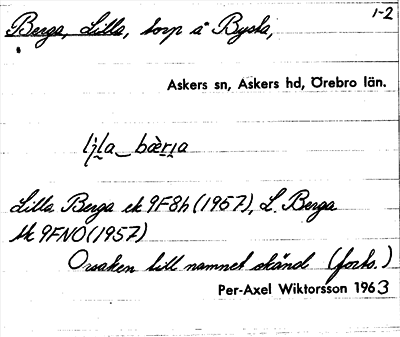 1-2
Berga, Lilla, torp å Bysta,
Askers sn, Askers hd, Örebro län.
lı̣la_bæ̀rı̣a
Lilla Berga ek 9F8h (1957), L. Berga
tk 9FNO (1957)
Orsaken till namnet okänd (forts.)
Per-Axel Wiktorsson 1963